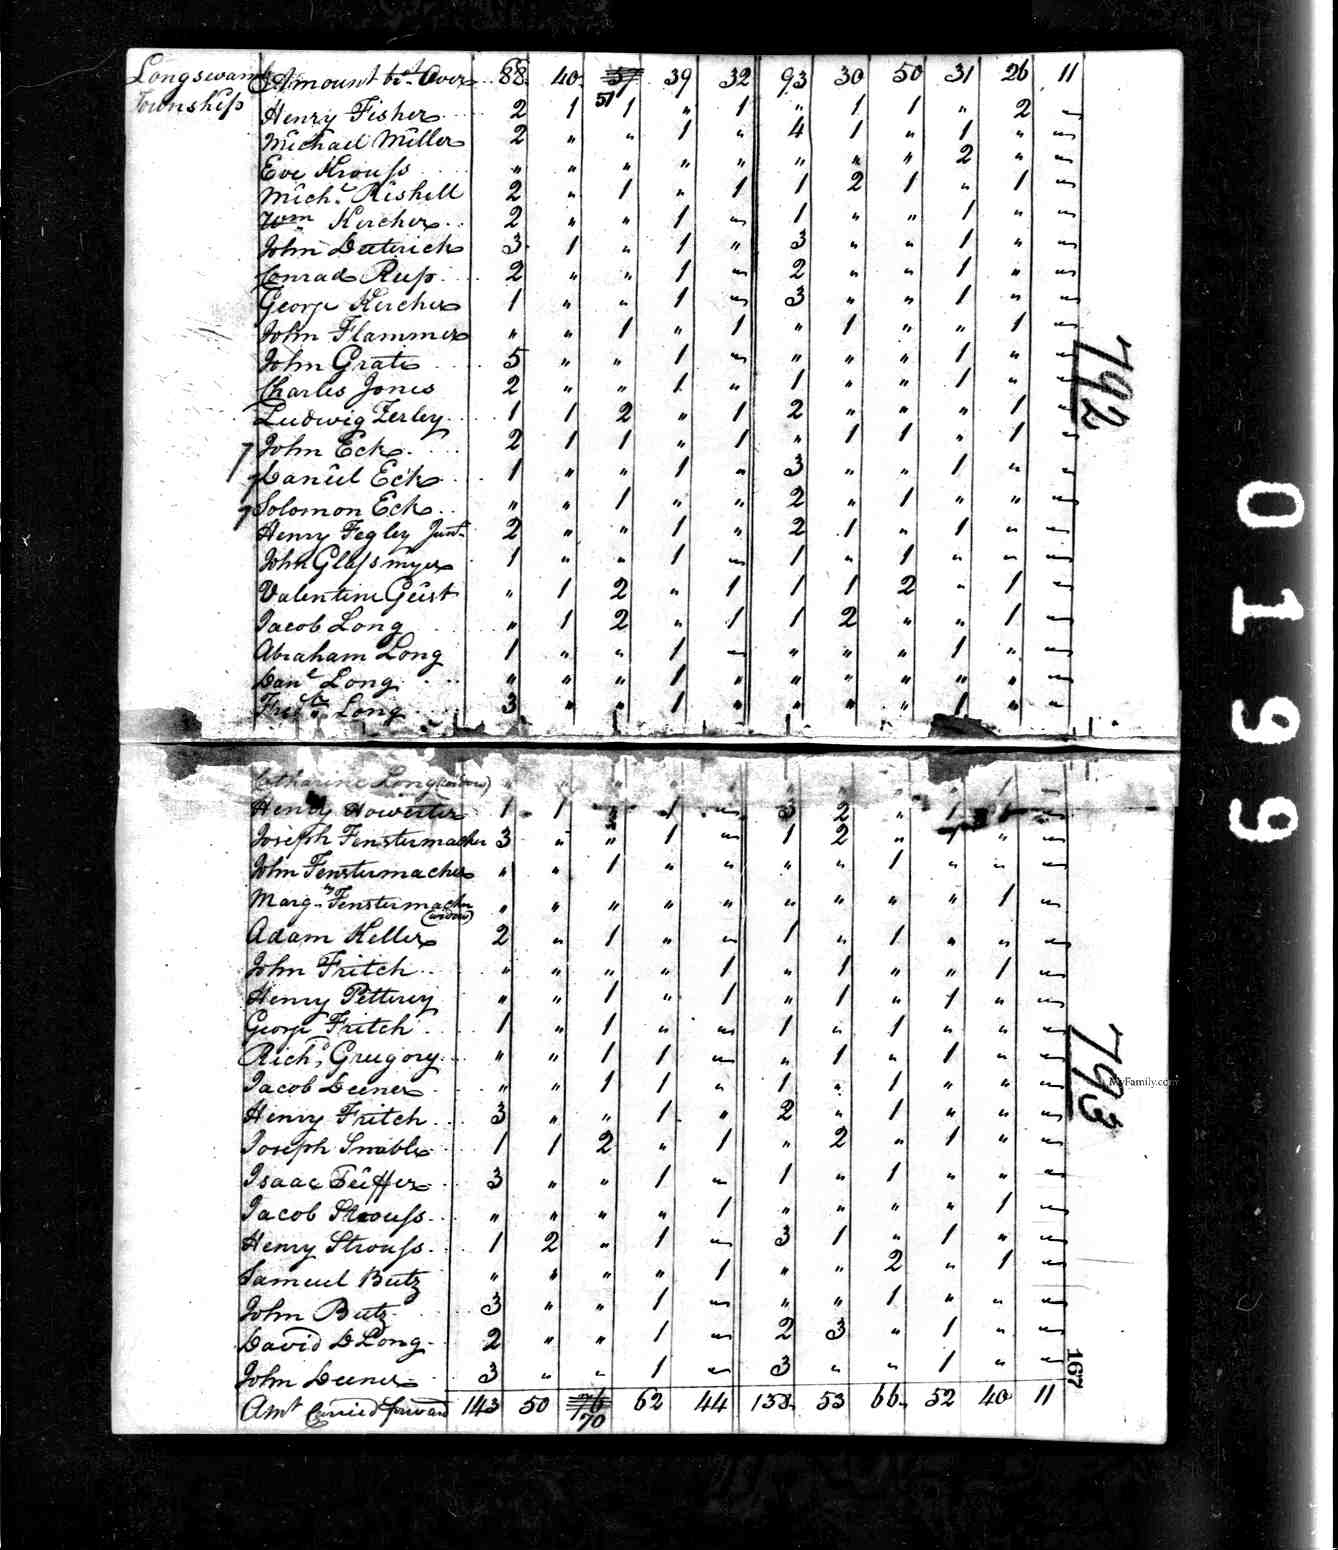 Longswamp Amount bro.t Over 88 40 57 39 32 93 30 50 31 26 11
Township 51
Henry Fisher 2 1 1 " 1 " 1 1 " 2 "
Michael Miller 2 " " 1 " 4 1 " 1 " "
Eve Krouss " " " " " " " " 2 " "
Mich.l Rishell 2 " 1 " 1 1 2 1 " 1 "
Wm Kercher 2 " " 1 " 1 " " 1 " "
John Deeterich 3 1 " 1 " 3 " " 1 " "
Conrad Rup 2 " " 1 " 2 " " 1 " "
George Kercher 1 " " 1 " 3 " " 1 " "
John Flammer " " 1 " 1 " 1 " " 1 "
John Grate 5 " " 1 " " " " 1 " "
Charles Jones 2 " " 1 " 1 " " 1 " "
Ludwig Zerley 1 1 2 " 1 2 " " " 1 "
John Eck 2 1 1 " 1 " 1 1 " 1 "
Daniel Eck 1 " " 1 " 3 " " 1 " "
Solomon Eck " " 1 " " 2 " 1 " " "
Henry Fegley Junr 2 " " 1 " 2 1 " 1 " "
John Glassmyer 1 " " 1 " 1 " 1 " " "
Valentine Geist " 1 2 " 1 1 1 2 " 1 "
Jacob Long " 1 2 " 1 1 2 " " 1 "
Abraham Long 1 " " 1 " " " " 1 " "
Danl Long " " " 1 " " " " " " "
Fredk Long 3 " " 1 " " " " 1 " "
792
Catharine Long (widow) " " " " " " " " " 1 "
Henry Howerter 1 1 3 1 " 3 2 " 1 1 "
Joseph Fenstermacher 3 " " 1 " 1 2 " 1 " "
John Fenstermacher " " 1 " " " " 1 " " "
Marg.y Fenstermacher " " " " " " " " " 1 "
(widow)
Adam Keller 2 " 1 " " 1 " 1 " " "
John Fritch " " " " 1 " 1 " " 1 "
Henry Petterey " " 1 " 1 " 1 " 1 " "
George Fritch 1 " 1 " " 1 " 1 " " "
Richd Greegory " " 1 1 " " 1 " 1 " "
Jacob Deener " " 1 1 " 1 " 1 " " "
Henry Fritch 3 " " 1 " 2 " 1 " " "
Joseph Snable 1 1 2 " 1 " 2 " 1 " "
Isaac Feiffer 3 " " 1 " 1 " 1 " " "
Jacob Strouss " " " " 1 " " " " 1 "
Henry Strouss 1 2 " 1 " 3 1 " 1 " "
Samuel Butz " " " " 1 " " 2 " 1 "
John Butz 3 " " 1 " " " 1 " " "
David D Long 2 " " 1 " 2 3 " 1 " "
John Deener 3 " " 1 " 3 " " 1 " "
Amt Carried forward 143 50 76 62 44 138 53 66 52 40 11
70
793
MyFamily.com
167
0199